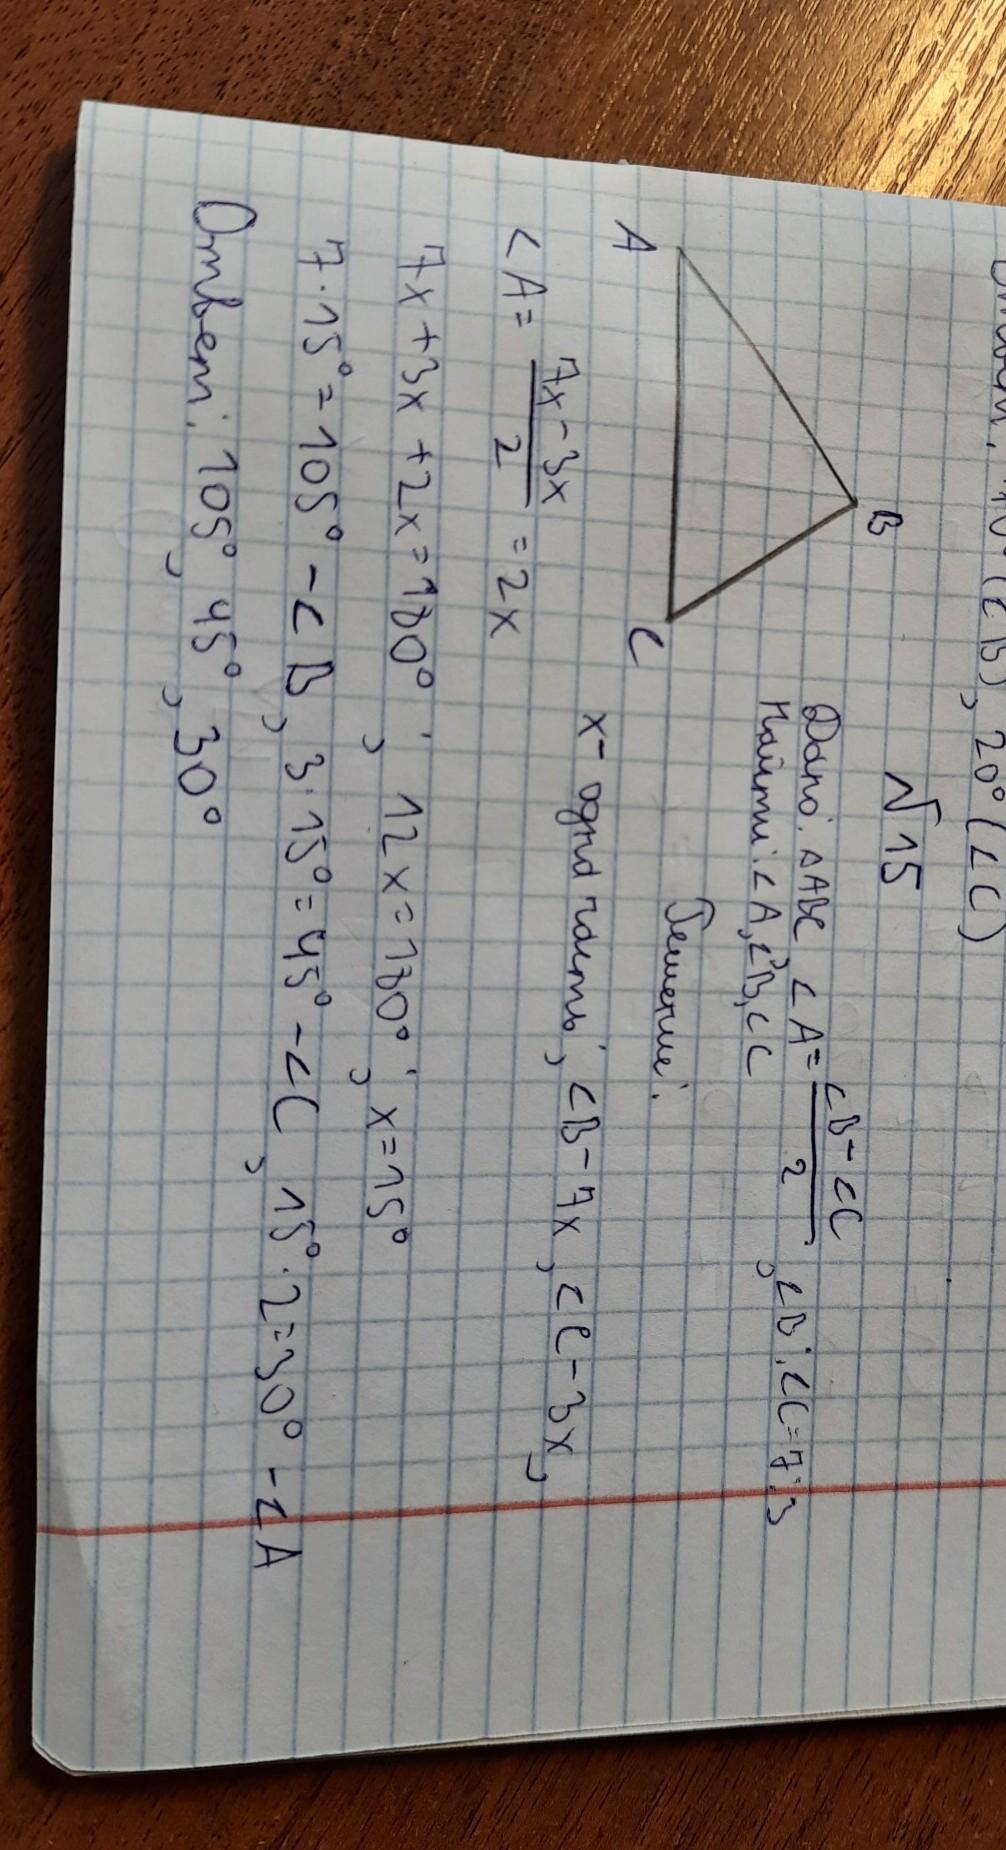 (∠B), 20° (∠C)
√15
Дано: △ABC, ∠A = (∠B - ∠C)/2, ∠B : ∠C = 7:3
Найти: ∠A, ∠B, ∠C
B
A
C
Решение:
x - одна часть; ∠B - 7x, ∠C - 3x,
∠A = (7x - 3x)/2 = 2x
7x + 3x + 2x = 180°; 12x = 180°; x = 15°
7·15° = 105° - ∠B, 3·15° = 45° - ∠C, 15°·2 = 30° - ∠A
Ответ: 105°, 45°, 30°